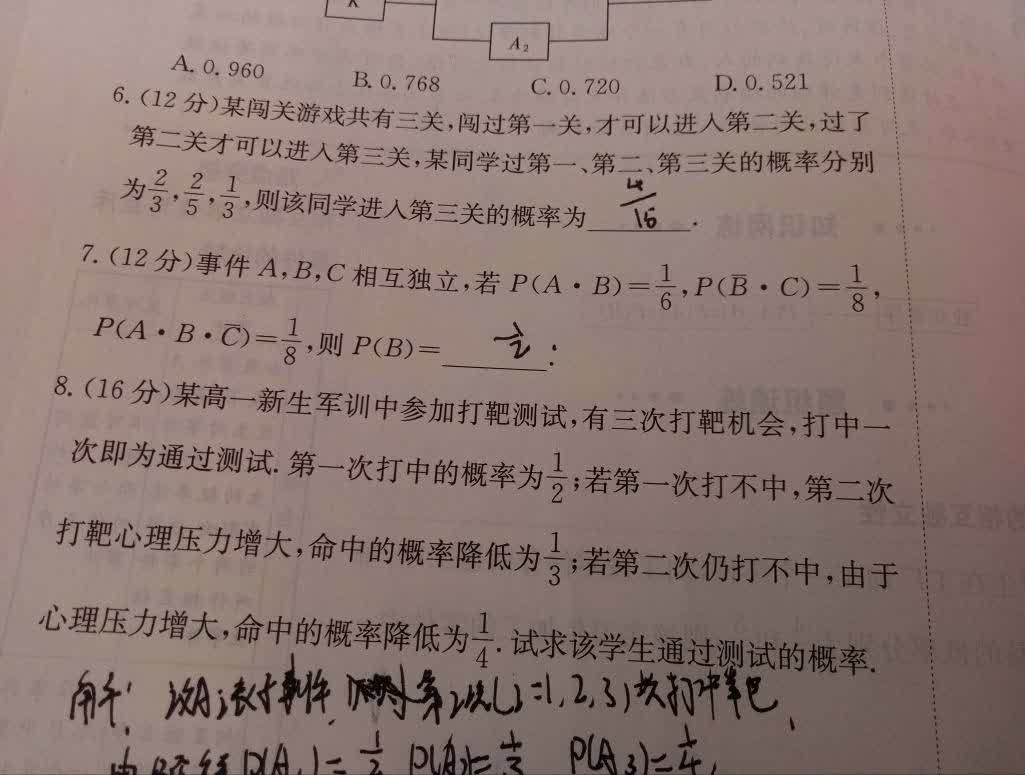 A₂
A. 0. 960 B. 0. 768 C. 0. 720 D. 0. 521
6. (12 分)某闯关游戏共有三关,闯过第一关,才可以进入第二关,过了
第二关才可以进入第三关,某同学过第一、第二、第三关的概率分别
为2/3,2/5,1/3,则该同学进入第三关的概率为 4/15 .
7. (12 分)事件 A,B,C 相互独立,若 P(A·B)=1/6,P(B̄·C)=1/8,
P(A·B·C̄)=1/8,则 P(B)= 1/2 .
8. (16 分)某高一新生军训中参加打靶测试,有三次打靶机会,打中一
次即为通过测试. 第一次打中的概率为1/2;若第一次打不中,第二次
打靶心理压力增大,命中的概率降低为1/3;若第二次仍打不中,由于
心理压力增大,命中的概率降低为1/4. 试求该学生通过测试的概率.
解: 表示事件 第i次(i=1,2,3)次打中靶
P(A₁)=1/2 P(A₂)=1/3 P(A₃)=1/4,